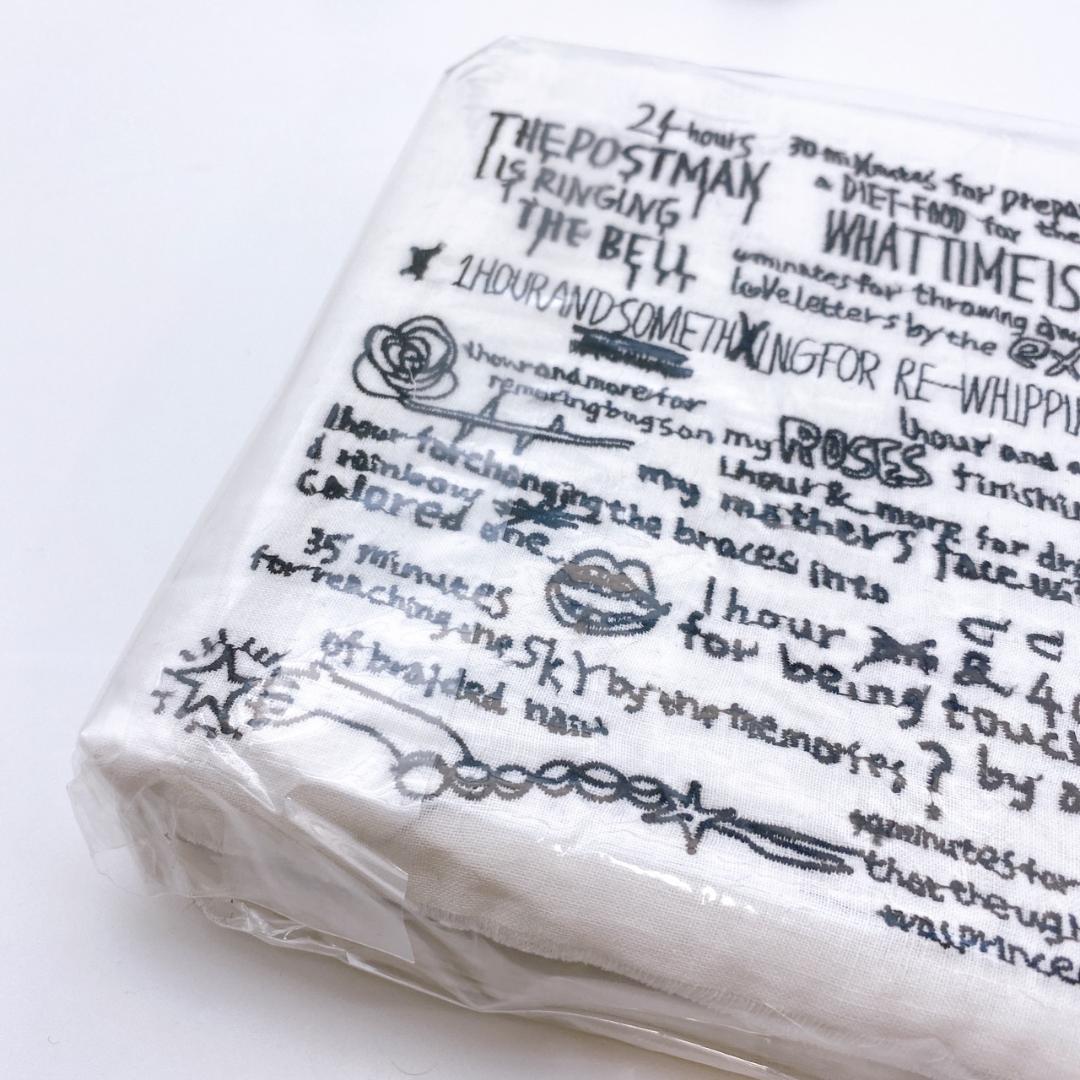 24 hours
THE POSTMAN
IS RINGING
THE BELL
30 minutes for
a DIET-FOOD for the
WHAT TIME IS
minutes for throwing
love letters by the ex
1 HOUR AND SOMETHING FOR RE-WHIPPI
1 hour and more for
removing bugs on my ROSES
1 hour and
1 hour for changing the braces into
a rainbow
colored one
1 hour & more for
my mother's face
35 minutes
for reaching the SKY by the memories ?
of braided hair
1 hour & 4
for being touch
by
minutes for
that the ugly
was prince